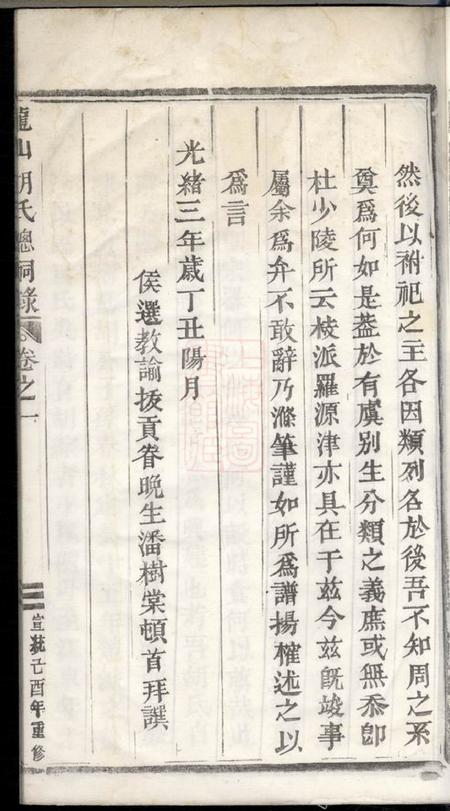 然後以祔祀之主各因類列各於後吾不知周之系
奠爲何如是蓋於有虞別生分類之義庶或無忝卽
杜少陵所云枝派羅源津亦具在于玆今玆旣竣事
屬余爲弁不敢辭乃滌筆謹如所爲譜揚搉述之以
爲言
光緒三年歲丁丑陽月
侯選教諭拔貢眷晚生潘樹棠頓首拜譔
龍山胡氏總祠錄 卷之一
宣統己酉年重修